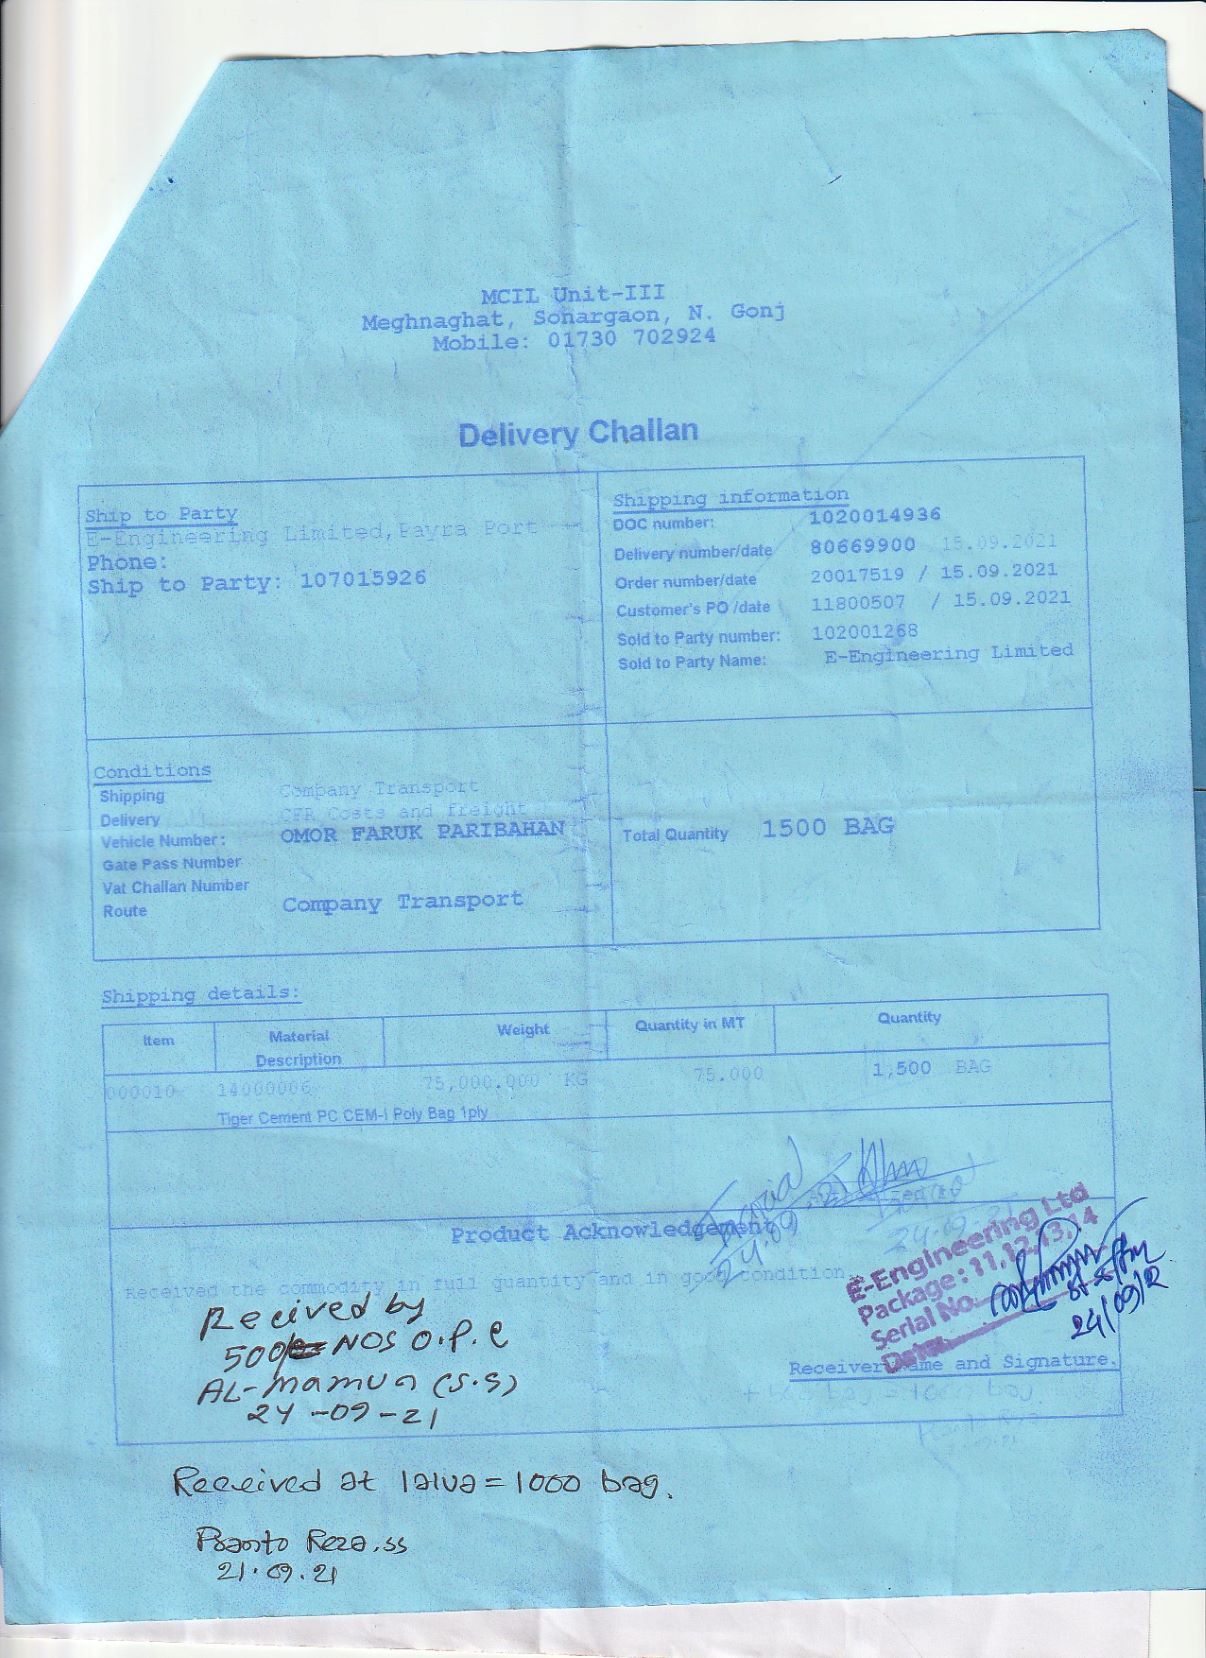 MCIL Unit-III
Meghnaghat, Sonargaon, N. Gonj
Mobile: 01730 702924
Delivery Challan
Ship to Party
E-Engineering Limited,Payra Port
Phone:
Ship to Party: 107015926
Shipping information
DOC number: 1020014936
Delivery number/date 80669900 15.09.2021
Order number/date 20017519 / 15.09.2021
Customer's PO /date 11800507 / 15.09.2021
Sold to Party number: 102001268
Sold to Party Name: E-Engineering Limited
Conditions
Shipping Company Transport
Delivery CFR Costs and freight
Vehicle Number: OMOR FARUK PARIBAHAN
Gate Pass Number
Vat Challan Number
Route Company Transport
Total Quantity 1500 BAG
Shipping details:
Item Material Description Weight Quantity in MT Quantity
000010 14000006 75,000.000 KG 75.000 1,500 BAG
Tiger Cement PC CEM-I Poly Bag 1ply
24.09.21
Product Acknowledgement
Received the commodity in full quantity and in good condition.
E-Engineering Ltd
Package: 11,12,13,14
Serial No.
Date:
24/09/2
Receiver Name and Signature.
Recived by
500 NOS O.P.C
AL-Mamun (S.S)
24-09-21
Received at = 1000 bag.
Reza.ss
21.09.21